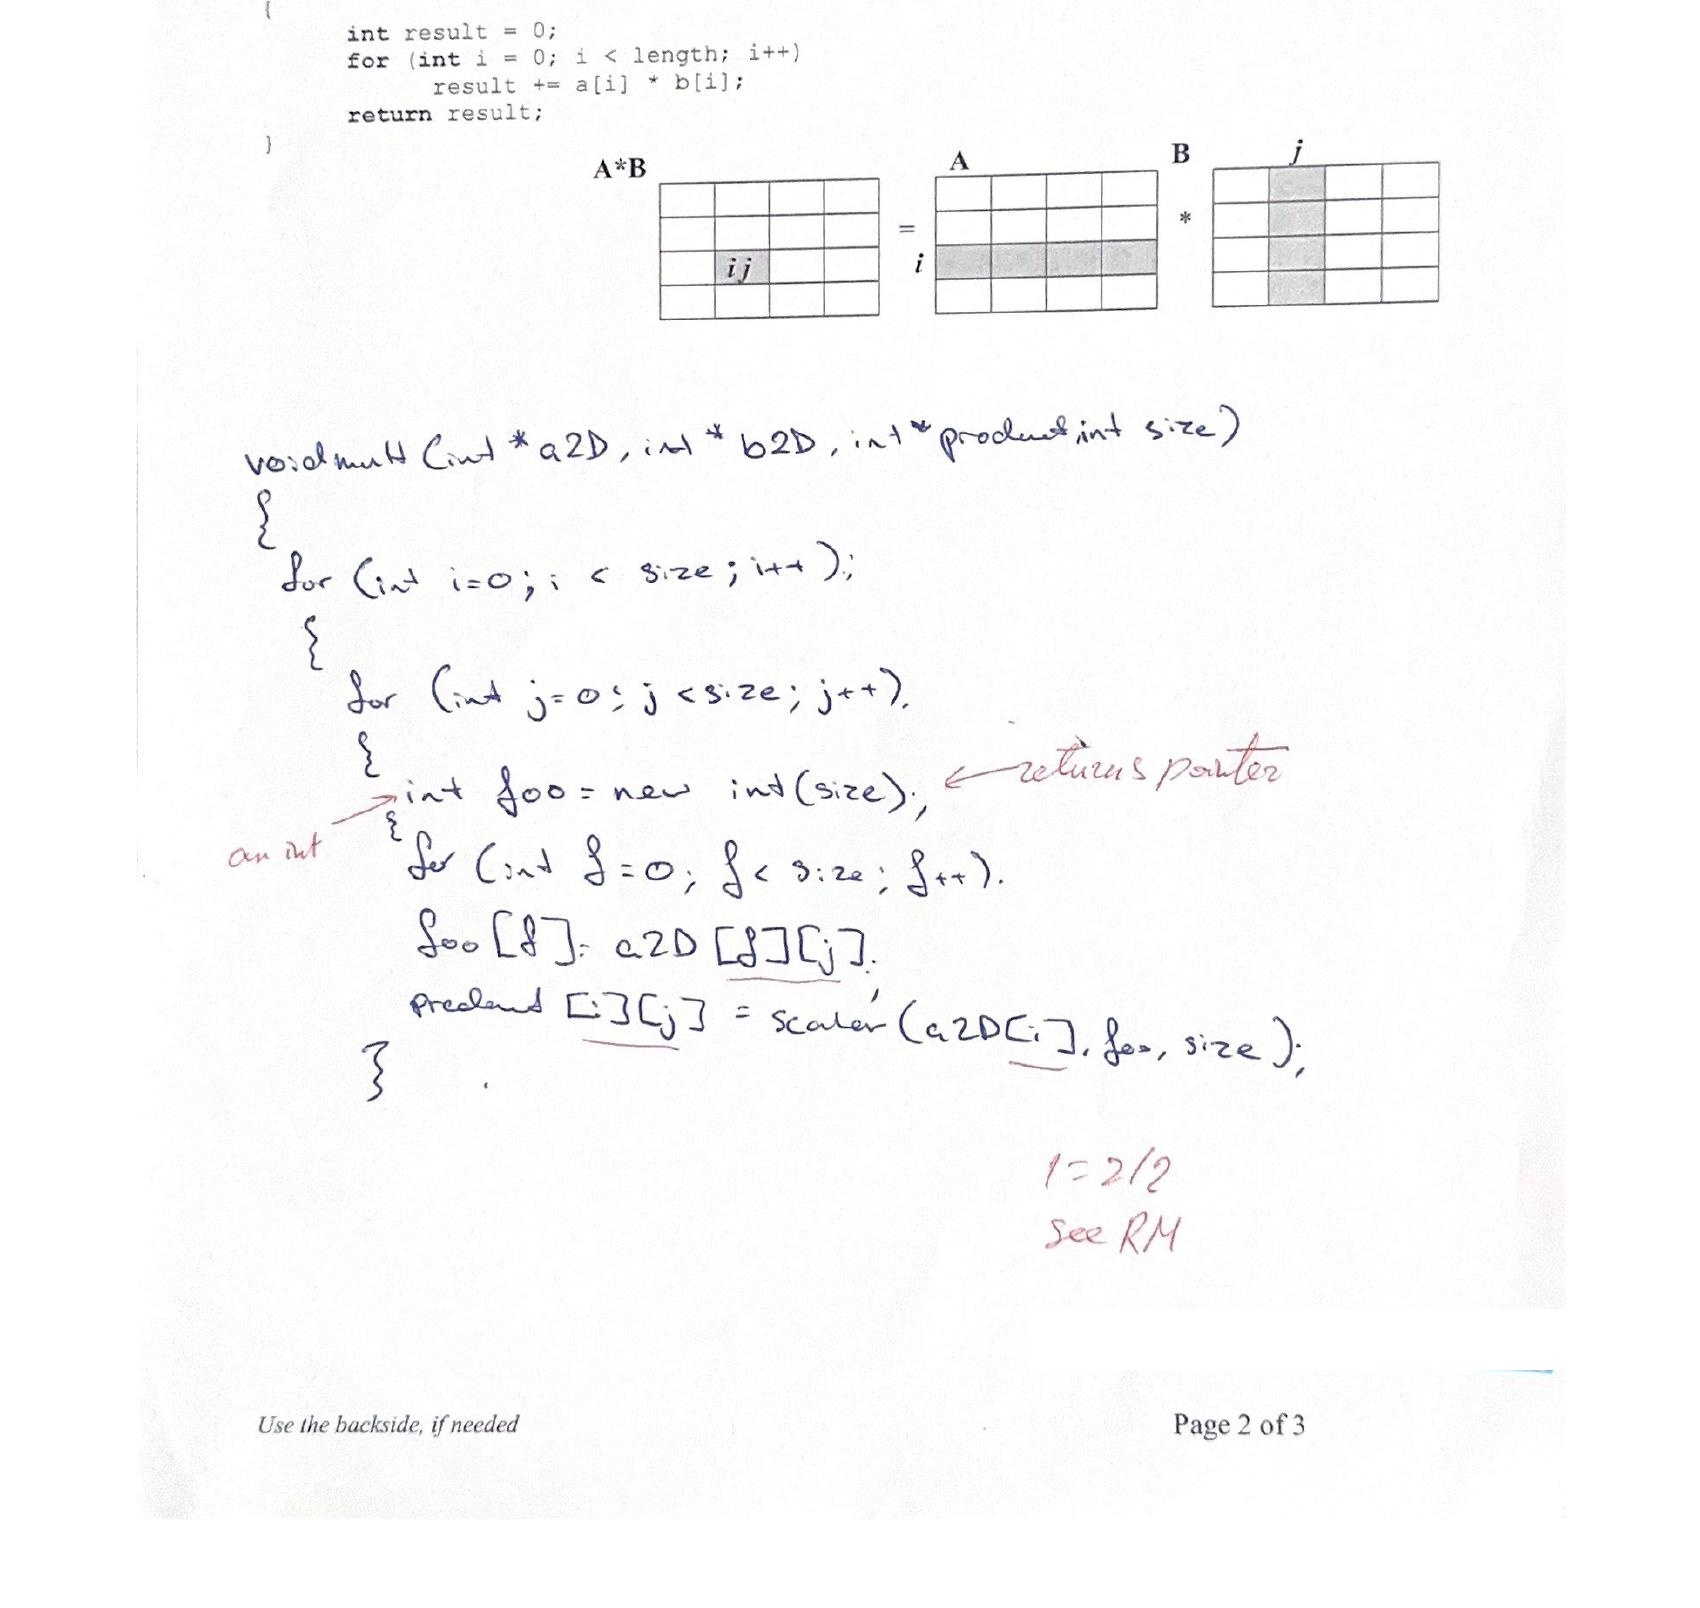 {
int result = 0;
for (int i = 0; i < length; i++)
result += a[i] * b[i];
return result;
}
A*B
A
B
j
=
*
i
ij
void mult (int * a2D, int * b2D, int * product, int size)
{
for (int i=0; i < size; i++);
{
for (int j=0; j <size; j++).
{
int foo = new int(size);
← returns pointer
an int
{
for (int f=0; f < size; f++).
foo [f] = a2D [f][j];
product [i][j] = scaler (a2D[i], foo, size);
}
1=2/2
see RM
Use the backside, if needed
Page 2 of 3